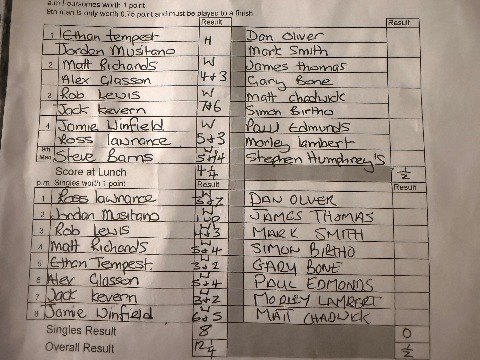 a.m Foursomes worth 1 point
9th man is only worth 0.75 point and must be played to a finish
Result Result
1 Ethan tempest H Dan Oliver
Jordan Musitano Mark Smith
2 Matt Richards W James thomas
Alex Glasson 4+3 Gary Bone
3 Rob Lewis W Matt chadwick
Jack Kevern 7+6 Simon Birtho
4 Jamie Winfield W Paul Edmunds
Ross lawrance 5+3 Morley lambert
9th Man Steve Barns W 5+4 Stephen Humphrey's
Score at Lunch 4 1/4 1/2
p.m. Singles worth 1 point Result Result
1 Ross lawrance W DAN OLIVER
2 Jordan Musitano 1up JAMES THOMAS
3 Rob Lewis W 4+3 MARK SMITH
4 Matt Richards W 5+4 SIMON BIRTHO
5 Ethan Tempest W 3+2 GARY BONE
6 Alex Glasson W 5+4 PAUL EDMONDS
7 Jack Kevern W 3+2 MORLEY LAMBERT
8 Jamie Winfield W 6+5 MATT CHADWICK
Singles Result 8 0
Overall Result 12 1/4 1/2